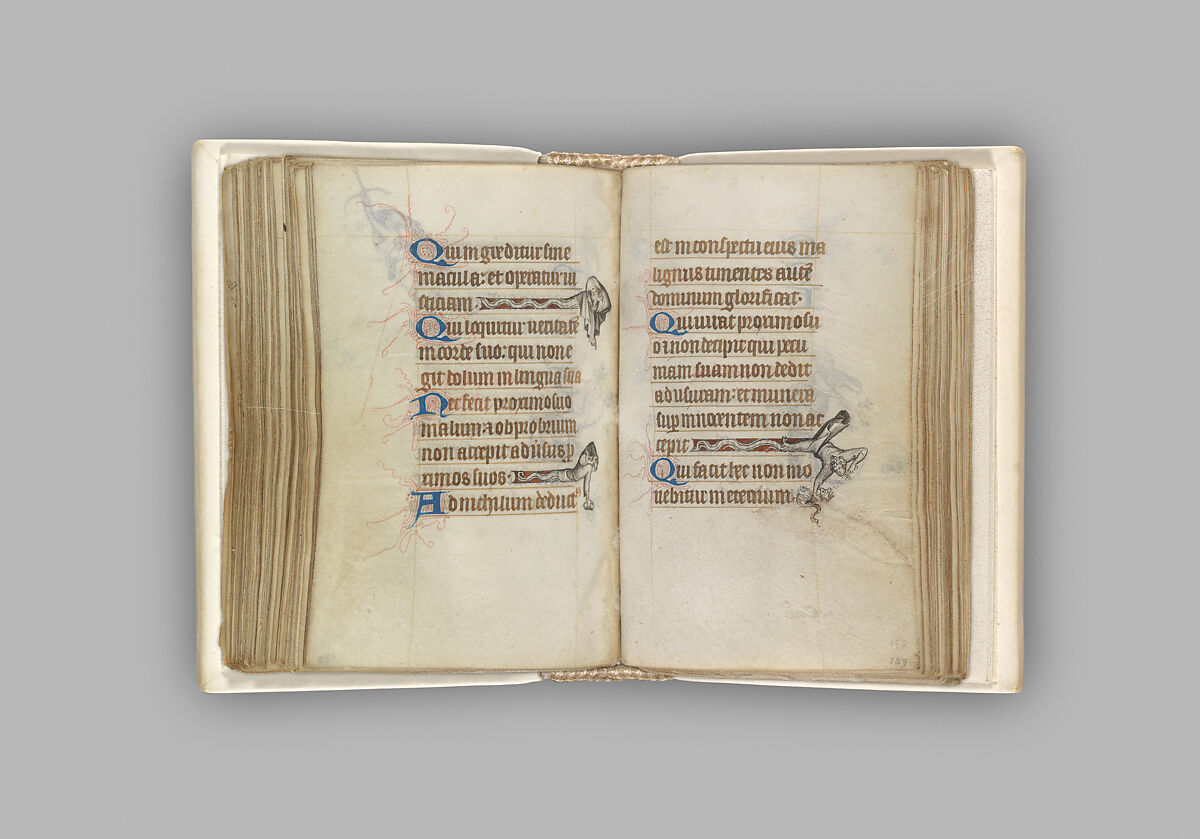 Qui ingreditur sine
macula: et operatur iu
sticiam
Qui loquitur ueritatē
in corde suo: qui non e
git dolum in lingua sua
Nec fecit proximo suo
malum & obprobrium
non accepit aduſus p
ximos suos.
Ad nichilum deduct⁹
est in conspectu eius ma
lignus timentes autē
dominum glorificat.
Qui iurat proximo su
o & non decipit qui pecu
niam suam non dedit
ad usuram: et munera
sup innocentem non ac
cepit
Qui facit hec non mo
uebitur in eternum
149